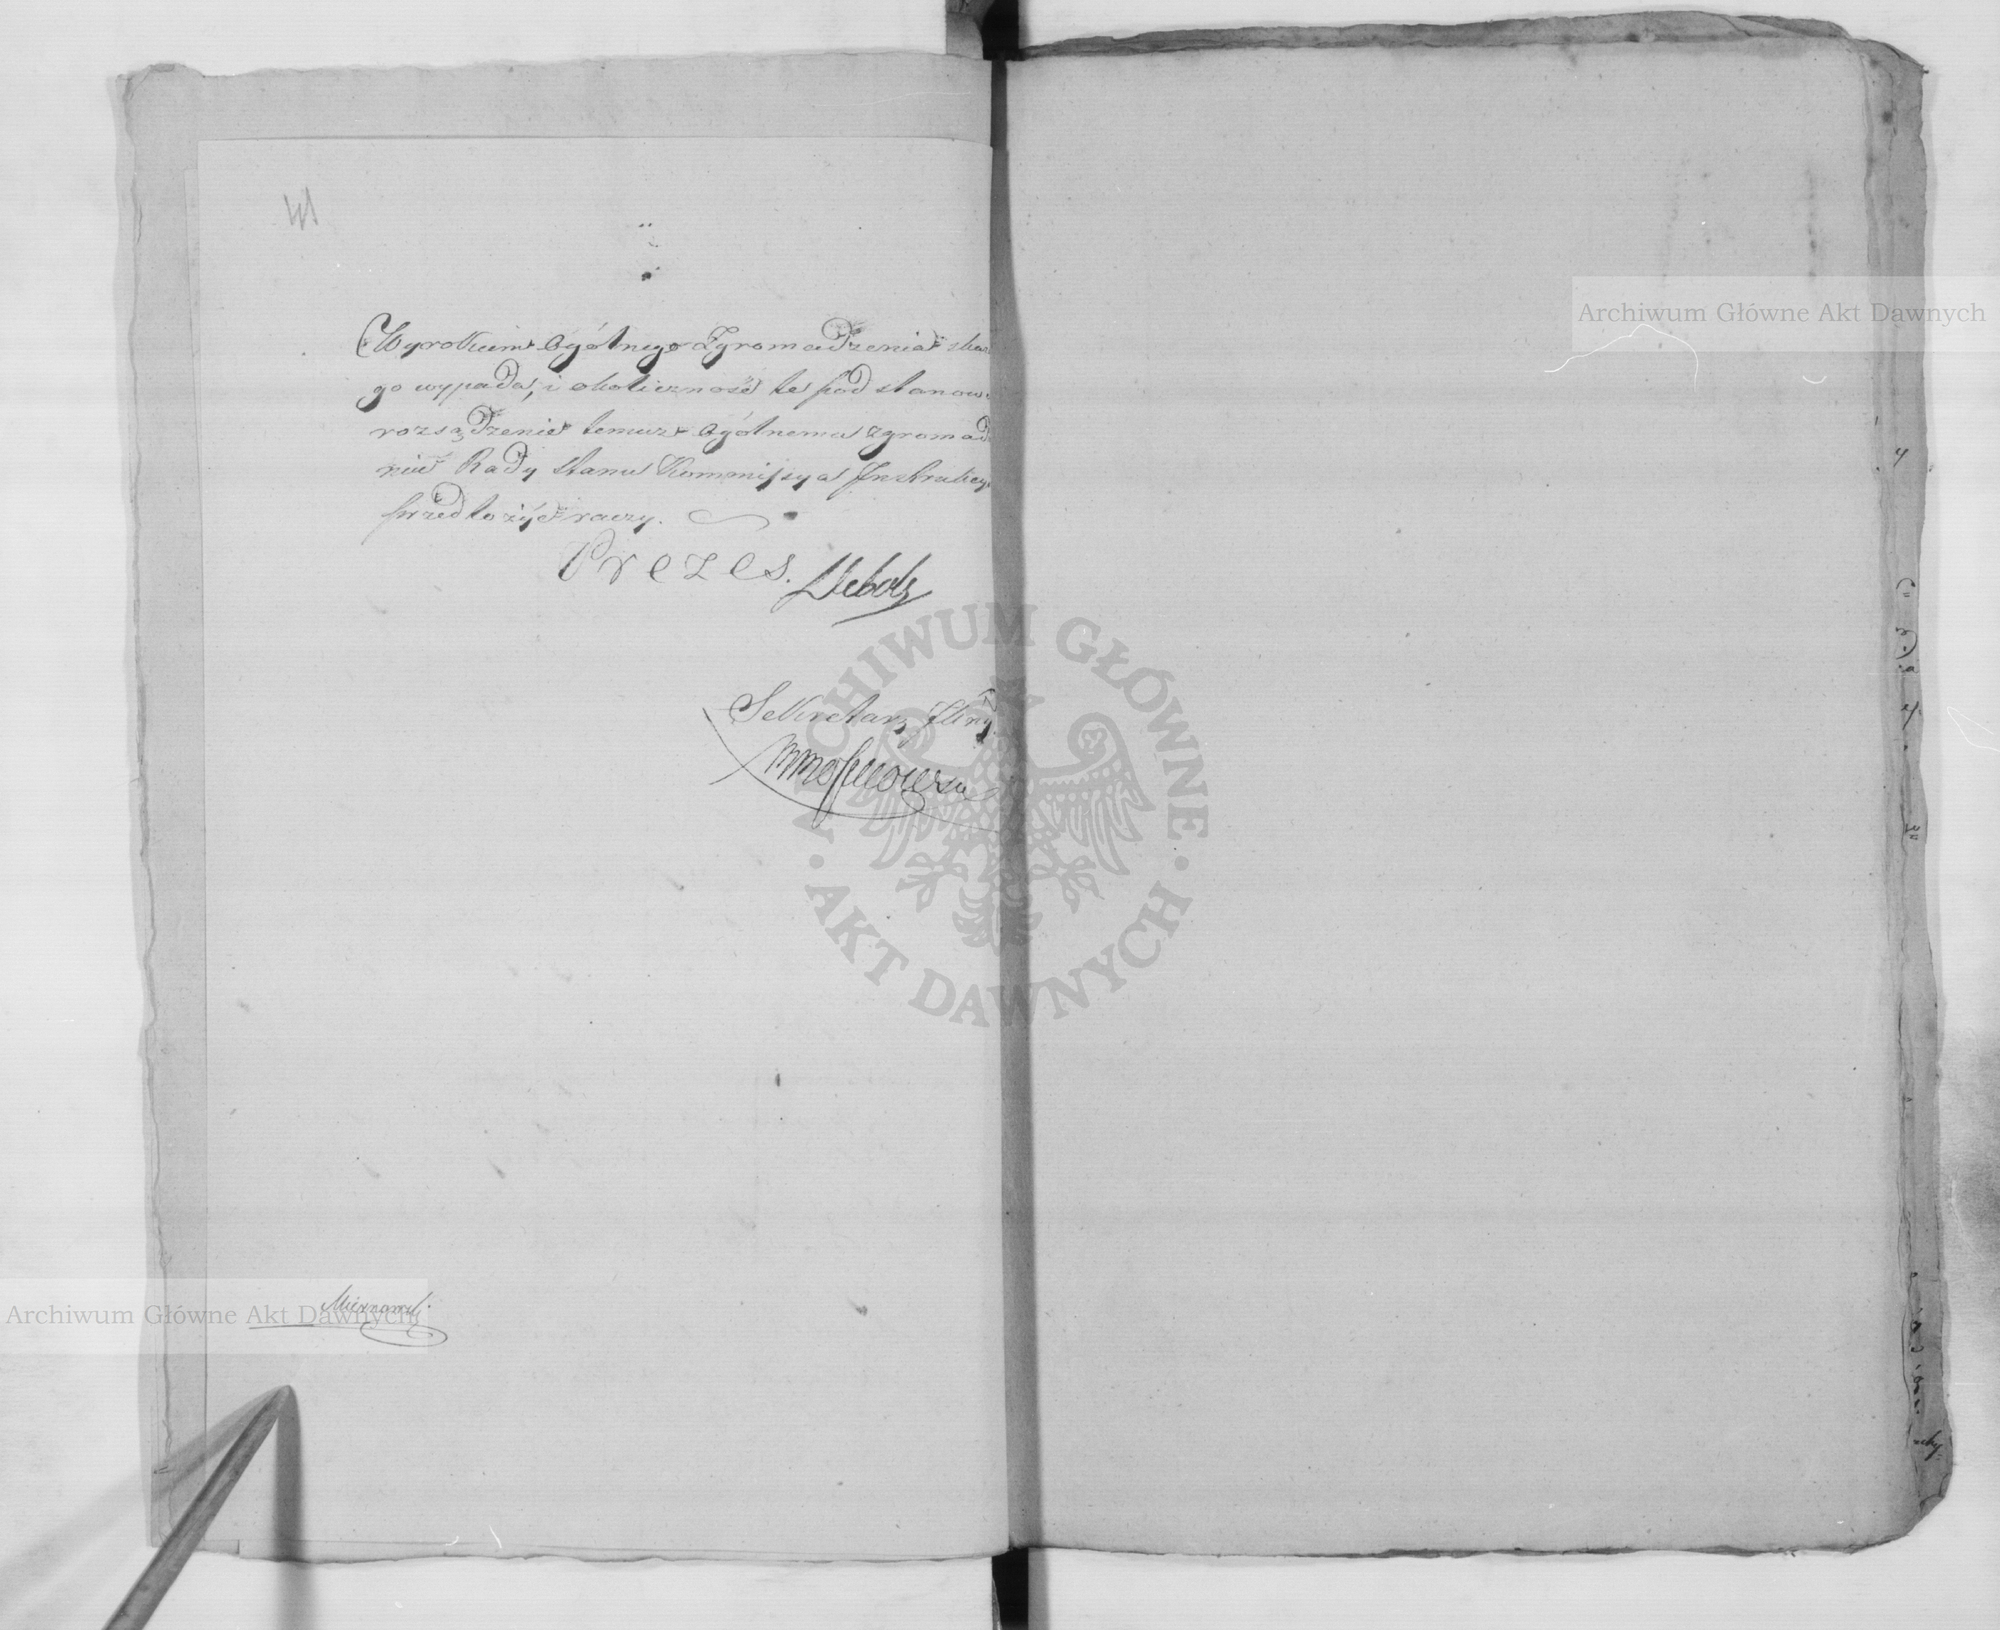 Wyrokiem Ogólnego Zgromadzenia
go wypada, i okoliczność te pod stanow
rozsądzenie temuż Ogólnemu Zgromad
niu Rady Stanu Kommissya Instrukcy
przedłożyć raczy.
Prezes.
Sekretarz
Archiwum Główne Akt Dawnych
ARCHIWUM GŁÓWNE AKT DAWNYCH
Archiwum Główne Akt Dawnych